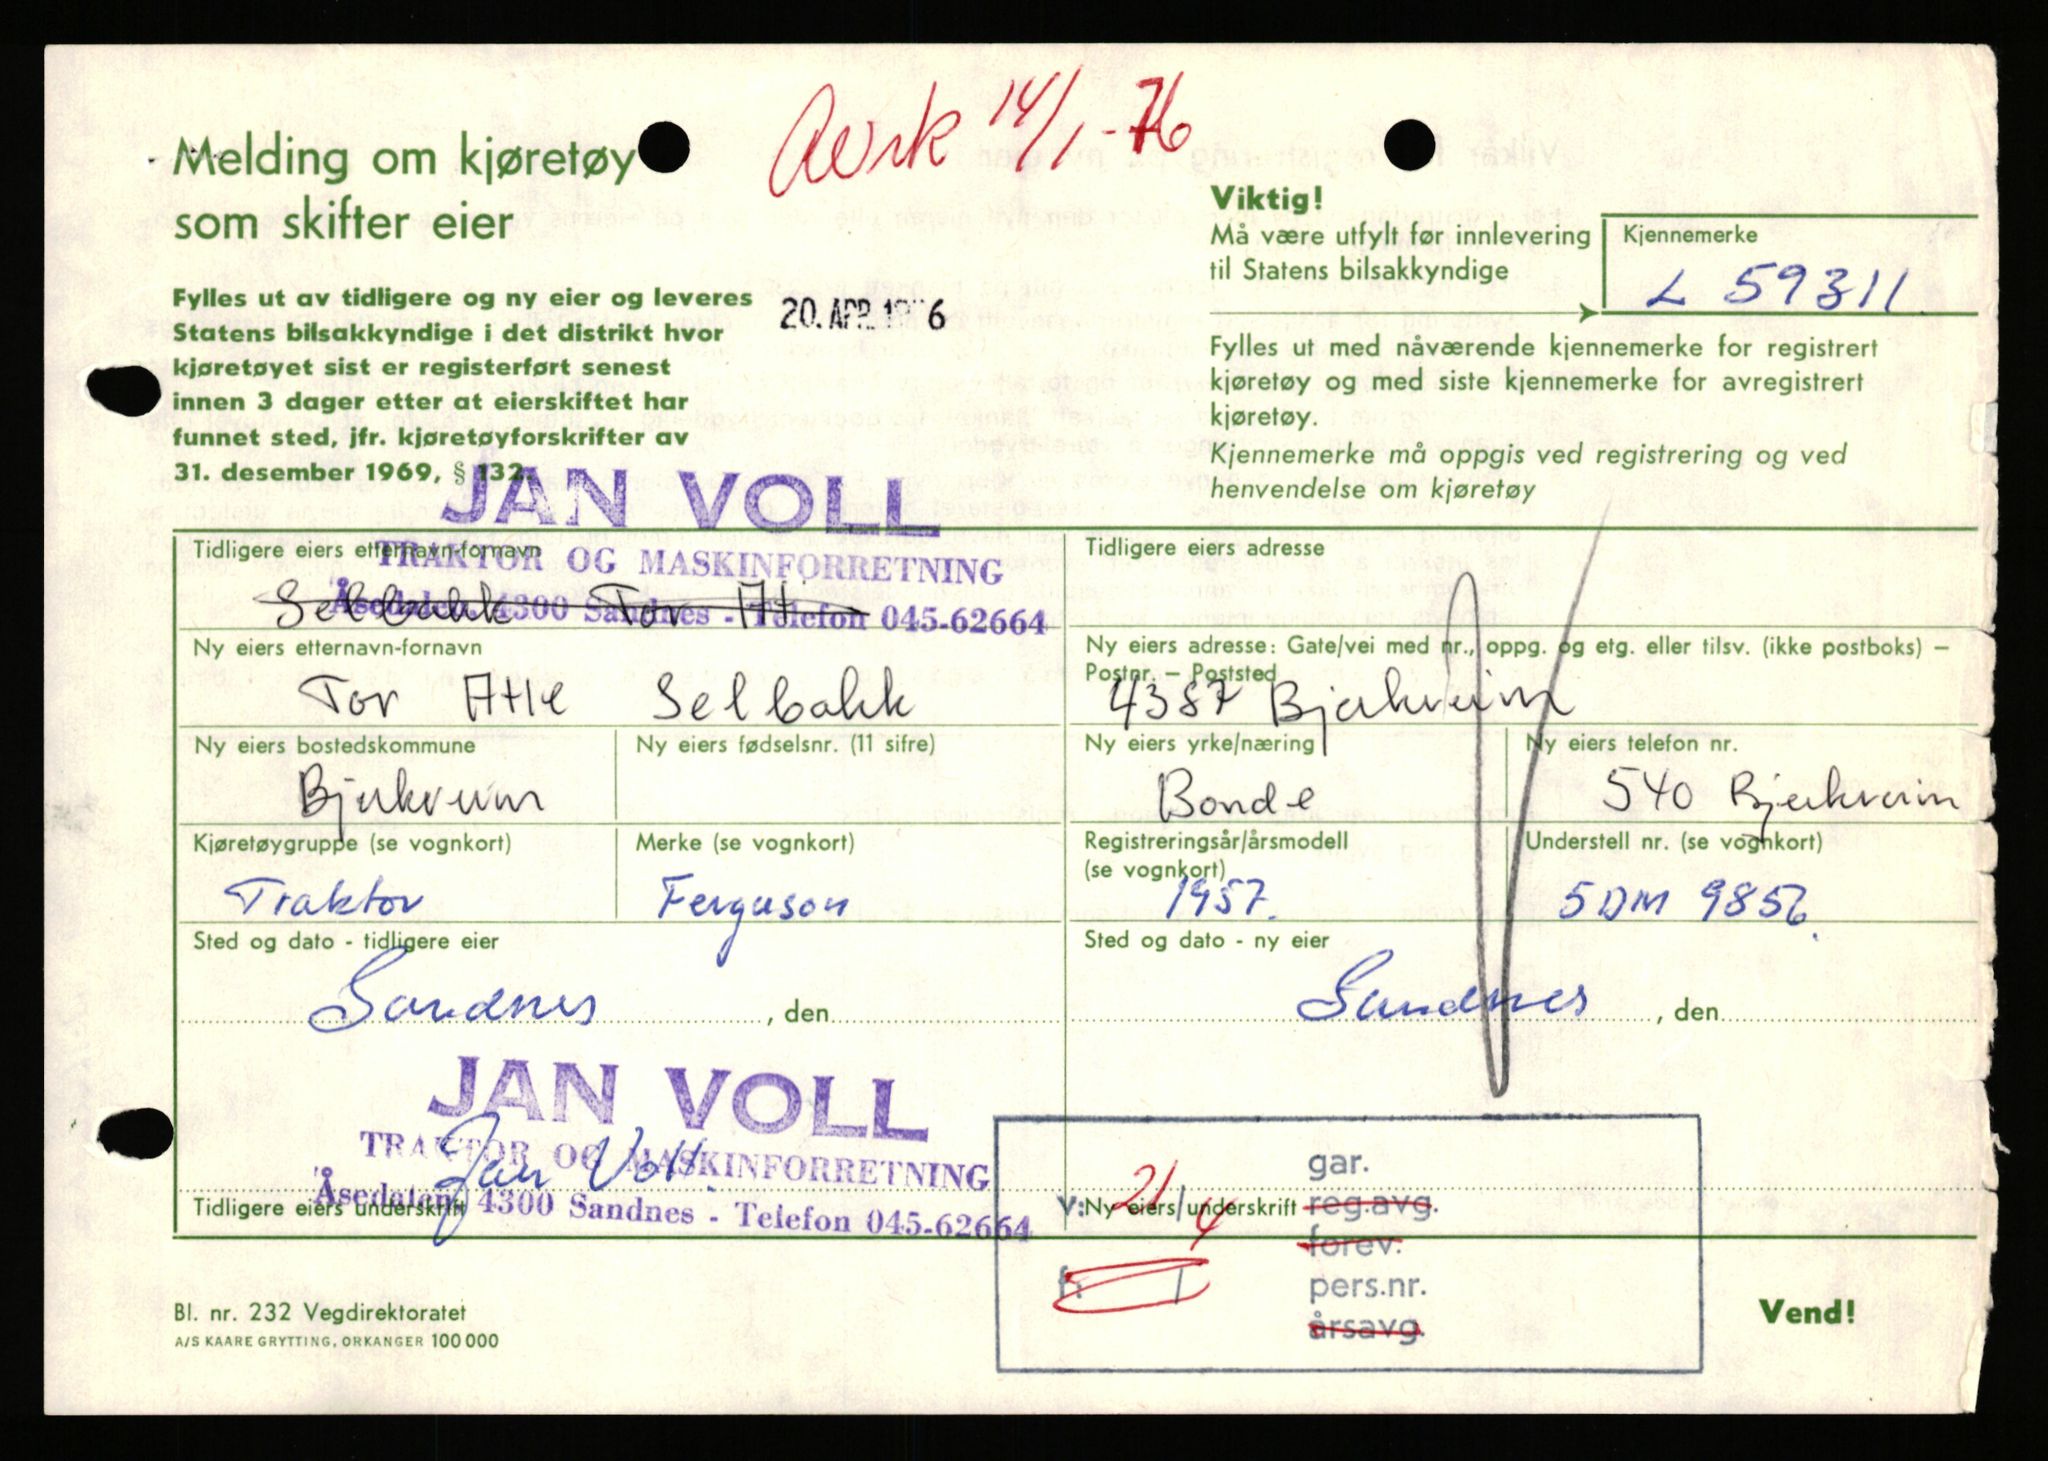 Avrk 14/1-76
Melding om kjøretøy
som skifter eier
Viktig!
Må være utfylt før innlevering
til Statens bilsakkyndige
Kjennemerke
L 59311
Fylles ut av tidligere og ny eier og leveres
Statens bilsakkyndige i det distrikt hvor
kjøretøyet sist er registerført senest
innen 3 dager etter at eierskiftet har
funnet sted, jfr. kjøretøyforskrifter av
31. desember 1969, § 132.
20. APR. 1976
Fylles ut med nåværende kjennemerke for registrert
kjøretøy og med siste kjennemerke for avregistrert
kjøretøy.
Kjennemerke må oppgis ved registrering og ved
henvendelse om kjøretøy
JAN VOLL
TRAKTOR OG MASKINFORRETNING
Åsedalen, 4300 Sandnes - Telefon 045-62664
Tidligere eiers etternavn-fornavn
Selbakk Tor Atl
Tidligere eiers adresse
Ny eiers etternavn-fornavn
Tor Atle Selbakk
Ny eiers adresse: Gate/vei med nr., oppg. og etg. eller tilsv. (ikke postboks) –
Postnr. – Poststed
4387 Bjerkreim
Ny eiers bostedskommune
Bjerkreim
Ny eiers fødselsnr. (11 sifre)
Ny eiers yrke/næring
Bonde
Ny eiers telefon nr.
540 Bjerkreim
Kjøretøygruppe (se vognkort)
Traktor
Merke (se vognkort)
Ferguson
Registreringsår/årsmodell
(se vognkort)
1957.
Understell nr. (se vognkort)
5DM 9856.
Sted og dato - tidligere eier
Sandnes , den
Sted og dato - ny eier
Sandnes , den
JAN VOLL
TRAKTOR OG MASKINFORRETNING
Åsedalen, 4300 Sandnes - Telefon 045-62664
Jan Voll.
Tidligere eiers underskrift
Ny eiers underskrift
v: 21/4
f: /
gar.
reg.avg.
forev.
pers.nr.
årsavg.
Bl. nr. 232 Vegdirektoratet
A/S KAARE GRYTTING, ORKANGER 100 000
Vend!